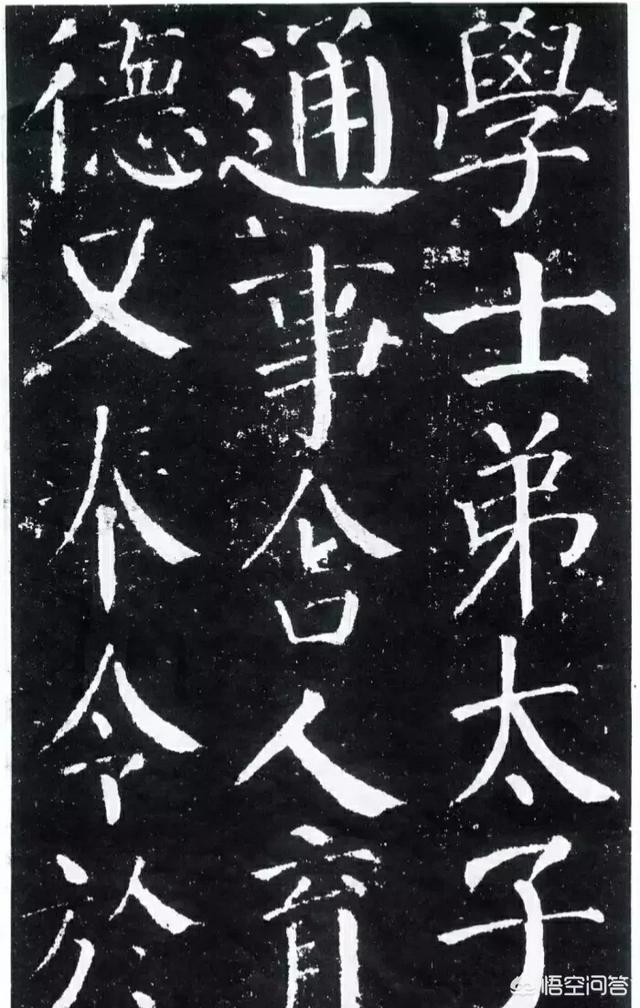 學士弟太子
通事舍人育
德又奉令於
悟空问答